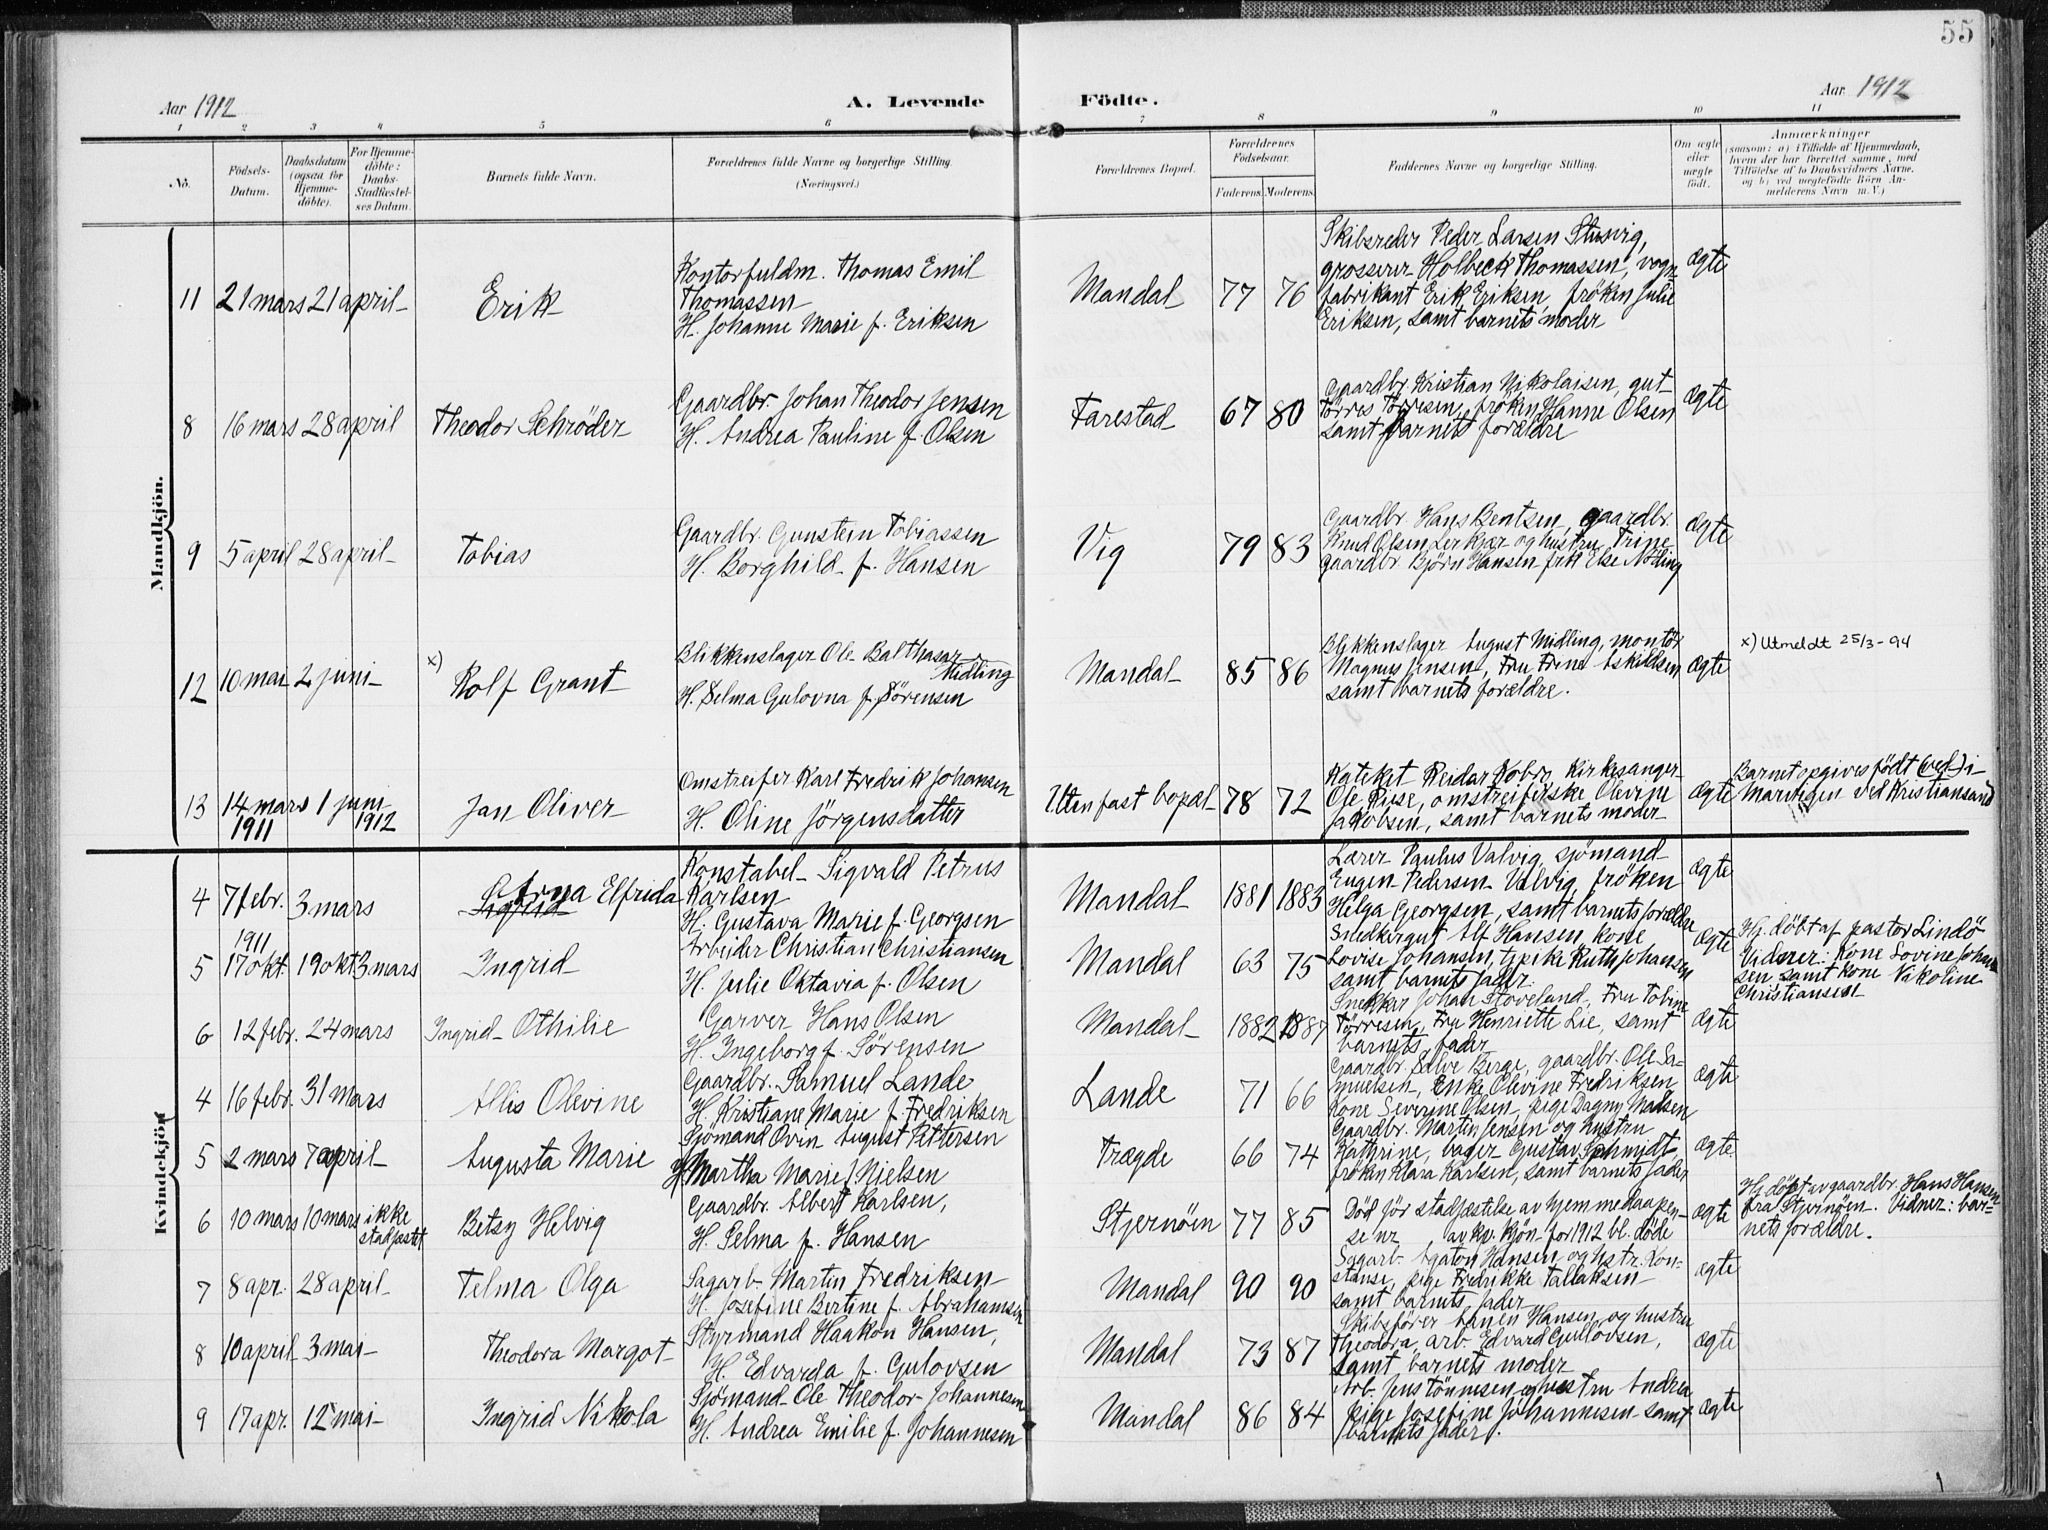 55
Aar 1912
A. Levende
Födte.
Aar 1912
1 2 3 4 5 6 7 8 9 10 11
No.
Födsels-
Datum.
Daabsdatum
(ogsaa for
Hjemme-
döbte).
For Hjemme-
döbte:
Daabs-
Stadfæstel-
ses Datum.
Barnets fulde Navn.
Forældrenes fulde Navne og borgerlige Stilling.
(Næringsvei.)
Forældrenes Bopæl.
Forældrenes
Födselsaar.
Faderens
Moderens
Faddernes Navne og borgerlige Stilling.
Om ægte
eller
uægte
födt.
Anmærkninger
(saasom: a) i Tilfælde af Hjemmedaab,
hvem der har forrettet samme, med
Tilföielse af to Daabsvidners Navne.
og b) ved uægtefödte Börn An-
melderens Navn m. V.)
Mandkjön.
11 21 mars 21 april
Erik
Kontorfuldm. Thomas Emil
Thomassen
H. Johanne Marie f. Eriksen
Mandal 77 76
Skibsreder Peder Larsen Stusvig,
grosserer Holbeck Thomassen, vogn-
fabrikant Erik Eriksen, fröken Julie
Eriksen, samt barnets moder
ægte
8 16 mars 28 april
Theodor Schröder
Gaardbr. Johan Theodor Jensen
H. Andrea Pauline f. Olsen
Farestad 67 80
Gaardbr. Kristian Nikolaisen, gut
Törres Törresen, fröken Hanne Olsen
samt barnets forældre
ægte
9 5 april 28 april
Tobias
Gaardbr. Gunstein Tobiassen
H. Borghild f. Hansen
Vig 79 83
Gaardbr. Hans Bentsen, gaardbr.
Knud Olsen Lerkjær og hustru Trine
gaardbr. Björn Hansen frk Else Nöding
ægte
12 10 mai 2 juni
x) Rolf Grant
Blikkenslager Ole Balthasar
Midling
H. Selma Gulovna f. Sörensen
Mandal 85 86
Blikkenslager August Midling, montör
Magnus Jensen, Fru Trine Askildsen
samt barnets forældre.
ægte
x) Utmeldt 25/3-94
13 14 mars 1 juni
1911 1912
Jan Oliver
Omstreifer Karl Fredrik Johansen
H. Oline Jörgensdatter
Uten fast bopæl 78 72
Kateket Reidar Kobro, kirkesanger
Ole Ruse, omstreiferske Olevine
Jakobsen, samt barnets moder
ægte
Barnet opgives födt (ved) i
Marvigen ved Kristiansand
Kvindekjön
4 7 febr. 3 mars
Sigrid Arna Elfrida
Konstabel Sigvald Petrus
Karlsen
H. Gustava Marie f. Georgsen
Mandal 1881 1883
Lærer Paulus Valvig, sjömand
Eugen Pedersen Valvig, fröken
Helga Georgsen, samt barnets forældre
ægte
1911
5 17 okt. 19 okt 3 mars
Ingrid
Arbeider Christian Christiansen
H. Julie Oktavia f. Olsen
Mandal 63 75
Snedkergut Alf Hansen, kone
Lovise Johansen, pike Ruth Johansen
samt barnets fader.
ægte
Hj. döbt af pastor Lindö
Vidner: Kone Lovine Johan
sen samt kone Nikoline
Christiansen
6 12 febr. 24 mars
Ingrid Othilie
Garver Hans Olsen
H. Ingeborg f. Sörensen
Mandal 1882 1887
Snekker Johan Stoveland, Fru Tobine
Törresen, Fru Henriette Lie, samt
barnets fader
ægte
4 16 febr. 31 mars
Allis Olevine
Gaardbr. Samuel Lande
H. Kristiane Marie f. Fredriksen
Lande 71 66
Gaardbr. Salve Berge, gaardbr. Ole Sa-
muelsen, Enke Olevine Fredriksen
Kone Severine Olsen, pige Dagny Madsen
ægte
5 2 mars 7 april
Augusta Marie
Sjömand Ovin August Pettersen
H. Martha Marie f. Nielsen
Trægde 66 74
Gaardbr. Martin Jensen og hustru
Kathrine, bager Gustav Schmidt,
fröken Klara Karlsen, samt barnets fader
ægte
6 10 mars 10 mars ikke
stadfæstet
Betsy Helvig
Gaardbr. Albert Karlsen,
H. Selma f. Hansen
Stjernöen 77 85
Död för stadfæstelse av hjemmedaapen
se nr av kv. kjön for 1912 bl. döde
ægte
Hj. döbt av gaardbr. Hans Hansen
fra Stjernöen. Vidner: bar-
nets forældre.
7 8 apr. 28 april
Telma Olga
Sagarb. Martin Fredriksen
H. Josefine Bertine f. Abrahamsen
Mandal 90 90
Sagarb. Agaton Hansen og hstr. Kon-
stanse, pige Fredrikke Tallaksen
samt barnets fader
ægte
8 10 april 3 mai
Theodora Margot
Styrmand Haakon Hansen,
H. Edvarda f. Gulovsen
Mandal 73 87
Skibsförer Hansen og hustru
Theodora, arb. Edvard Gullovsen,
samt barnets moder
ægte
9 17 apr. 12 mai
Ingrid Nikola
Sjömand Ole Theodor Johannesen
H. Andrea Emilie f. Johannesen
Mandal 86 84
Arb. Jens Tönnesen og hustru Andrea
pige Josefine Johannesen samt
barnets fader.
ægte